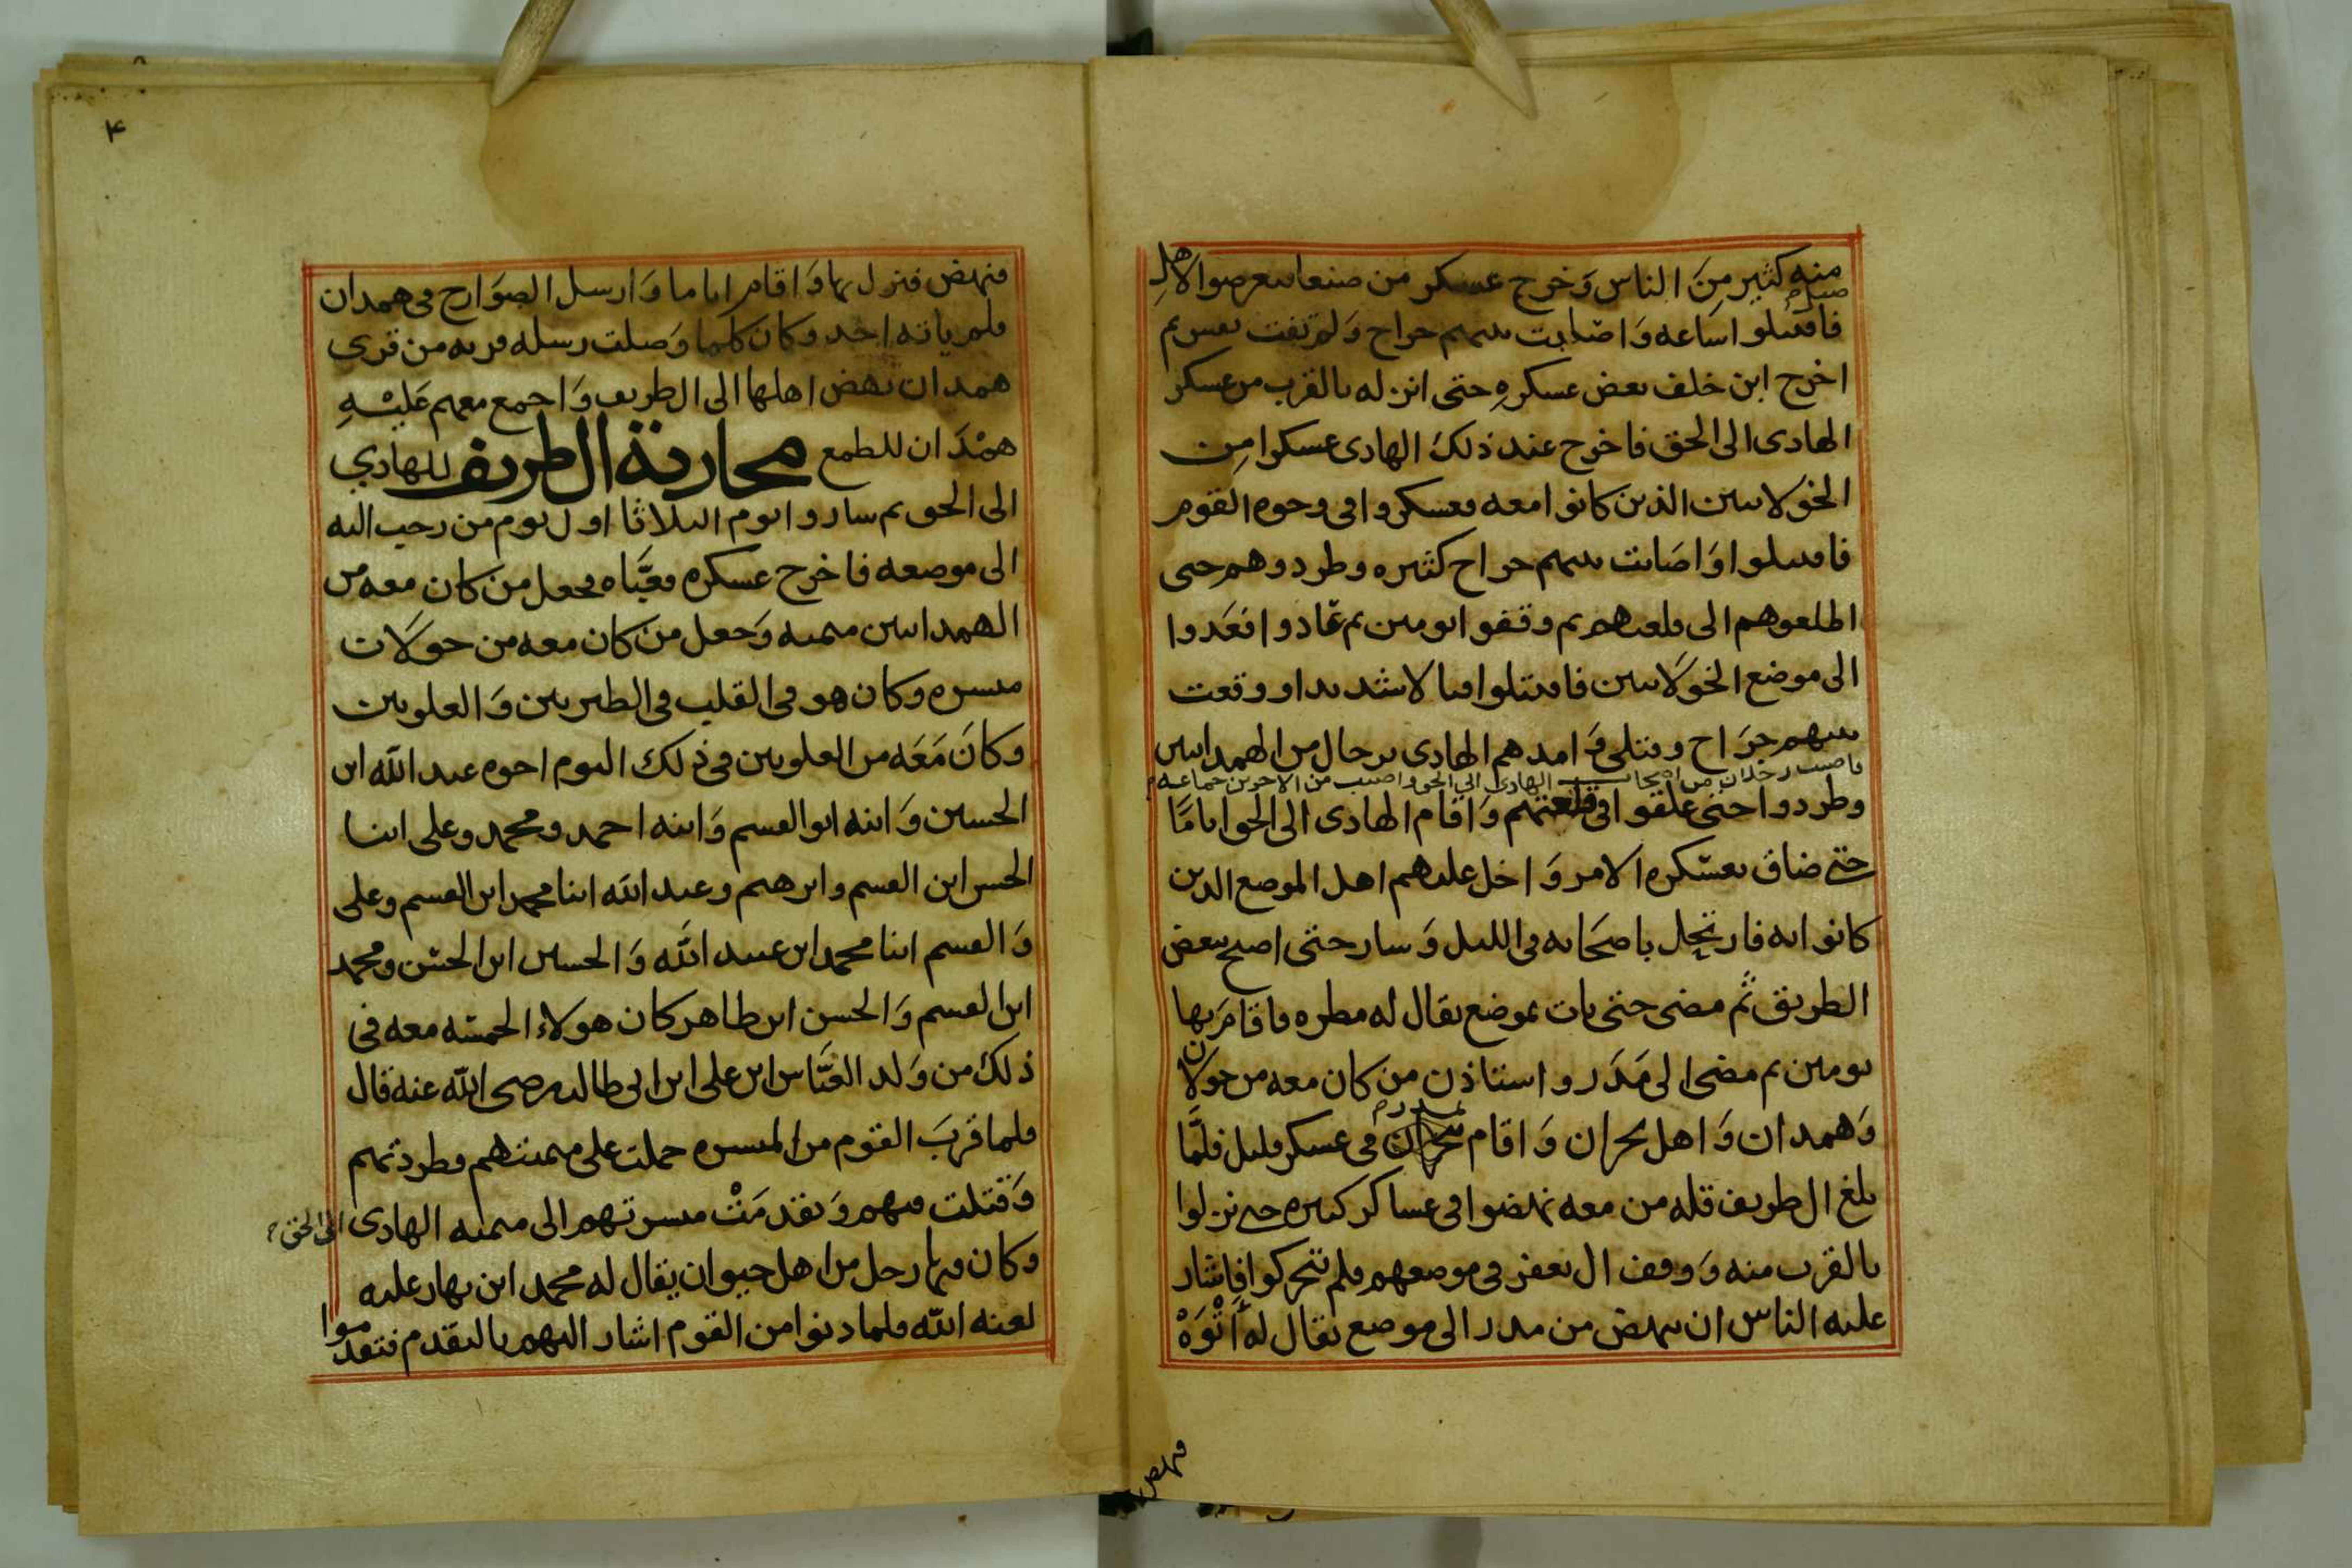 منه كثير منَ الناس وَخرج عسكر من صنعا فتعرضوا لاهل
ضبر م
فاقتتلوا ساعه وَاصابت بينهم جراح وَلم تفت نفس ثم
اخرج ابن خلف بعض عسكرهِ حتى انزله بالقرب من عسكر
الهادى الى الحق فاخرج عند ذلك الهادى عسكرا مِن
الخولانيين الذين كانوا معه فعسكروا فى وجوه القوم
فاقتتلوا وَاصَابت بينهم جراح كثيره وطردوهم حتى
اطلعوهم الى قلعتهم ثم وقفوا يومين ثم عَادوا فعَدوا
الى موضع الخولَانيين فاقتتلوا قتالا شديدا ووقعت
بينهم جرَاح وقتلى وَامدهم الهادى برجال من الهمدانيين
فاصيب رجلان من اصحاب الهادى الى الحق واصيب من الاخرين جماعه م
وطردوا حتى علقوا فى قلعتهم وَاقام الهادى الى الحق اياما
حتى ضاق بعسكره الامر وَاخل عليهم اهل الموضع الدين
كانوا به فارتحل باصحَابه فى الليل وَسار حتى اصبح ببعض
الطريق ثم مضى حتى بات بموضع يقال له مطره فاقامَ بها
يومين ثم مضى الى مَدَر واستاذن من كان معه من خولان
وَهمدان وَاهل نجران وَاقام فى عسكر قليل فلمَّا
بمدر م
بلغ ال طريف قله من معه نهضوا فى عساكر كثيره حتى نزلوا
بالقرب منه وَوقف ال يعفر فى موضعهم فلم يتحركوا فاشار
عليه الناس ان ينهض من مدر الى موضع يقال له أَثْوَهْ
فنهض
٤
فنهض فنزل بها وَاقام اياما وَارسل الصوَارح فى همدان
فلم ياته احد وكان كلما وَصلت رسله قريه من قرى
همدان نهض اهلها الى ال طريف وَاجمع معهم عَليْهِ
همْدَان للطمع محاربة ال طريف للهادي
الى الحق ثم ساروا يوم الثلاثا اول يوم من رجب اليه
الى موضعه فاخرج عسكره فعبَّاه فجعل من كان معه من
الهمدانيين ميمنه وَجعل من كان معه من خولَان
ميسره وكان هو فى القلب فى الطبريين وَالعلويين
وكانَ مَعَه من العلويين فى ذلك اليوم اخوه عبد الله ابن
الحسين وَابنه ابو القسم وَابنه احمد ومحمد وعلى ابنا
الحسن ابن القسم وابرهيم وعبد الله ابنا محمد ابن القسم وعلى
وَالقسم ابنا محمد ابن عبيد الله وَالحسين ابن الحسن ومحمد
ابن القسم وَالحسن ابن طاهر كان هولاء الخمسه معه فى
ذلك من وَلد العبَّاس ابن على ابن ابى طالب رضى الله عنه قال
فلما قربَ القوم من الميسره حملت على ميمنتهم وطردتهم
وَقتلت فيهم وَتقدمَتْ ميسرتهم الى ميمنه الهادى الى الحق م
وكان فيها رجل من اهل خيوان يقال له محمد ابن بهار عليه
لعنه الله فلما دنوا من القوم اشار اليهم بالتقدم فتقدموا